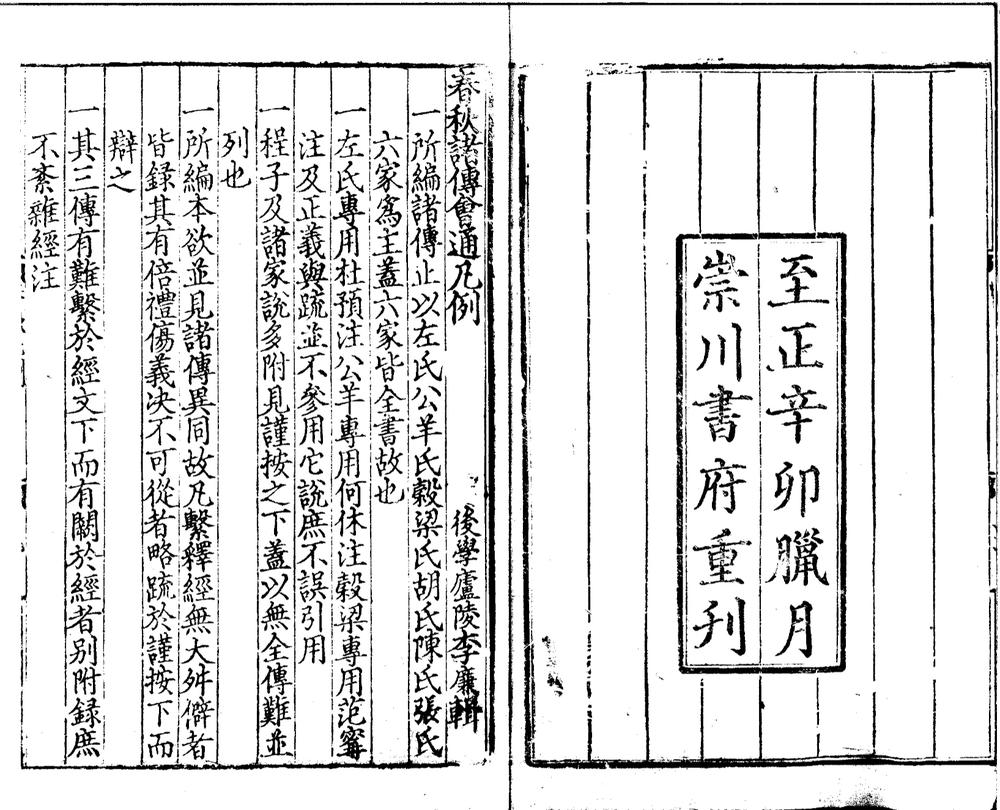 至正辛卯臘月
崇川書府重刋
春秋諸傳會通凡例
後學廬陵李廉輯
一所編諸傳止以左氏公羊氏穀梁氏胡氏陳氏張氏
六家爲主蓋六家皆全書故也
一左氏專用杜預注公羊專用何休注穀梁專用范寗
注及正義與疏並不參用它說庶不誤引用
一程子及諸家說多附見謹按之下蓋以無全傳難並
列也
一所編本欲並見諸傳異同故凡繫釋經無大舛僻者
皆録其有倍禮傷義决不可從者略疏於謹按下而
辯之
一其三傳有難繫於經文下而有關於經者别附録庶
不紊雜經注